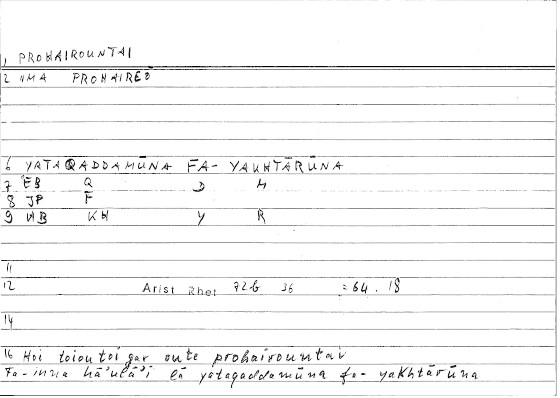 1 PROHAIROUNTAI
2 HMA PROHAIREŌ
6 YATAQADDAMŪNA FA- YAKHTĀRŪNA
7 EB Q D M
8 JP F
9 WB KH Y R
11
12 Arist Rhet 72b 36 =64.18
14
16 Hoi toioutoi gar oute prohairountai
Fa-inna hā'ulā'i lā yataqaddamūna fa- yakhtārūna